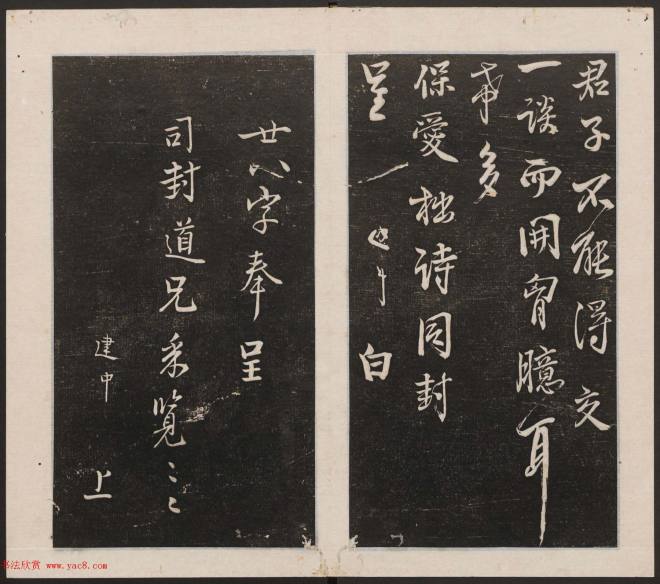 君子不能得交
一談而開胷臆耳
希多
保愛拙詩同封
呈 建中 白
廿八字奉呈
司封道兄采覽〻〻
建中 上
书法欣赏 www.yac8.com